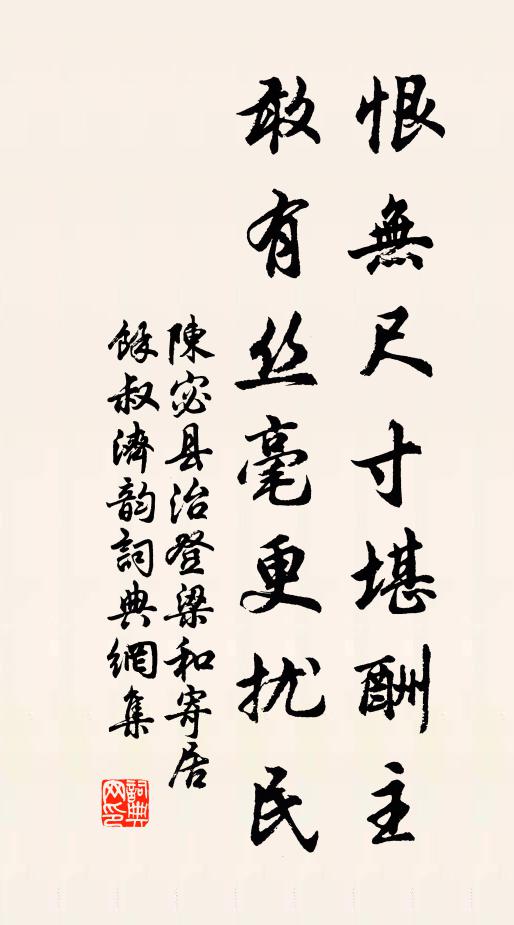 恨無尺寸堪酬主
敢有丝毫更扰民
陳宓县治登梁和寄居
餘叔濟韵詞典網集
詞典网印